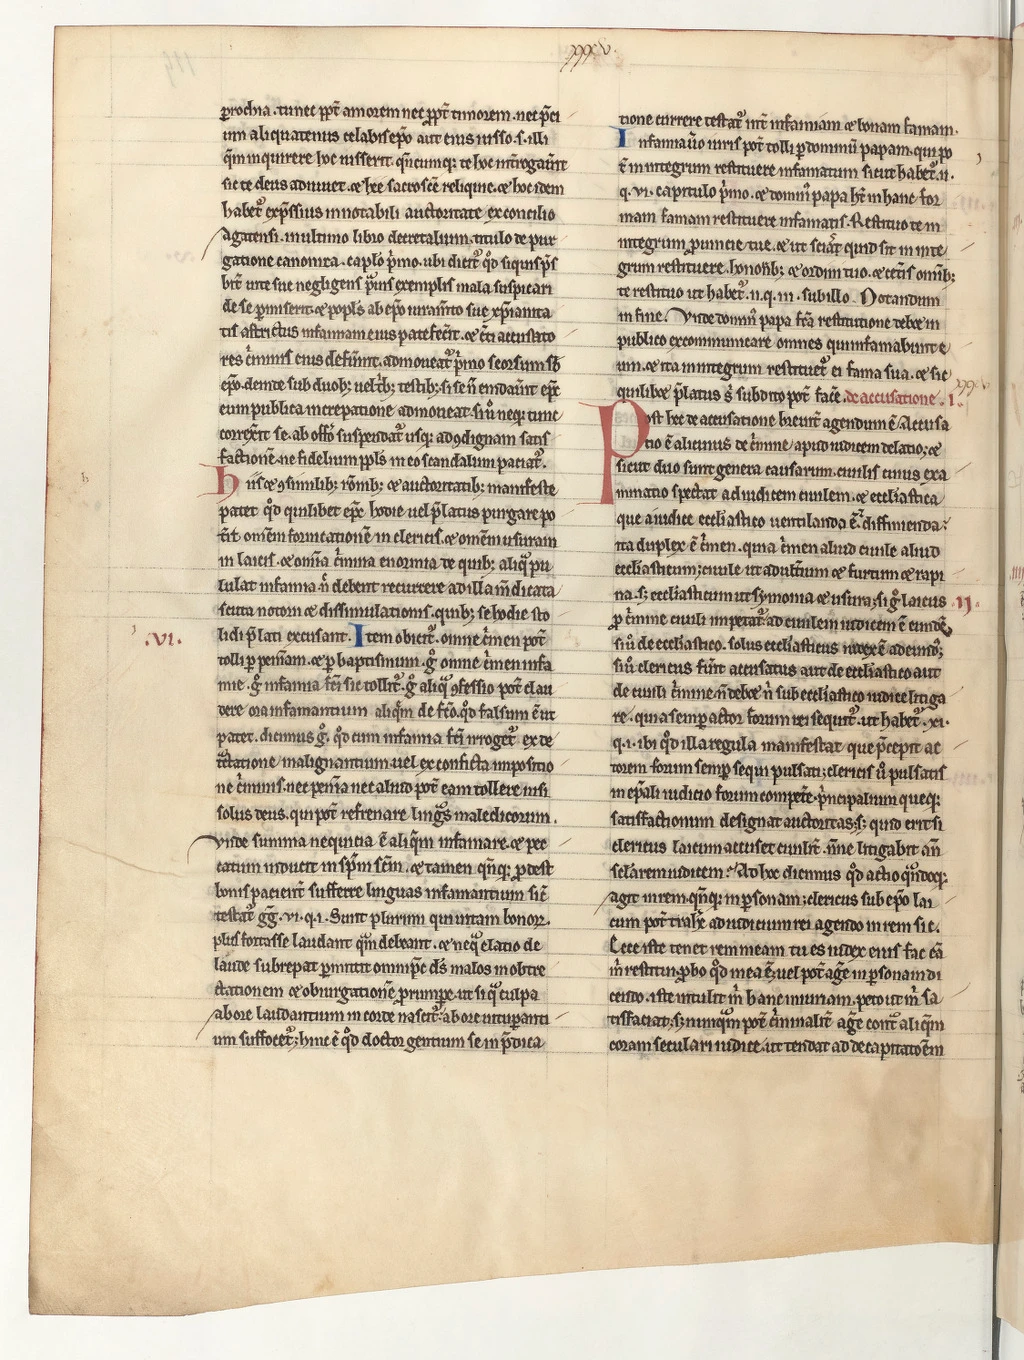 xxxv.
prochia. tunc nec ppt amorem nec ppt timorem. nec p̄ci
um aliquatenus celabis ep̄o aut eius iusso. s. illi
q̄m inquirere hoc iusserit. q̄n cumq; te hoc int̄rogaūit
sic te deus adiuuet. & hee sacrosc̄e reliquie. & hoc idem
habet᷑ exp̄ssius in notabili auctoritate ex concilio
Agatensi. in ultimo libro decretalium. titulo de pur
gatione canonica. cap̄lo p̄mo. ubi dicit᷑ qd̄ si quis p̄s
bit̄ uite sue negligens p̄uis exemplis mala suspicari
de se p̄miserit & popl̄s ab ep̄o iuram̄to sue xp̄ianita
tis astrictus infamiam eius patefec̄it. & c̄ti accusato
res c̄minis eius defūint. admoueat᷑ p̄mo seorsum sb̄
ep̄o. deinde sub duob; uel t̄b; testib; si se n̄ emdaūit ep̄c
eum publica increpatione admoueat. sin̄ neq; tunc
correx̄it se. ab off̄o suspendat᷑ usq; ad 9dignam satis
factionē. ne fidelium ppl̄s in eo scandalum paciat᷑.
His & 9similib; rōnib; & auctoritatib; manifeste
patet qd̄ quilibet ep̄c hodie uel p̄latus purgare po
t̄it om̄em fornicationē in clericis. & om̄em usuram
in laicis. & om̄ia c̄mina enormia de quib; aliq̄ pu
lulat infamia. n̄ debent recurrere ad illa in̄dicata
scuta notor & dissimulationis. quib; se hodie sto
lidi p̄lati excusant. Item obicit᷑. omne c̄men pot̄
.vi.
tolli p peniam. & p baptismum. g̊ omne c̄men infa
mie. g̊ infamia fc̄i sic tollit᷑. g̊ aliq̄ 9fessio pot̄ clau
dere ora infamantium aliq̄m de fc̄o. qd̄ falsum ē ut
patet. dicimus g̊. qd̄ cum infamia fc̄i irroget᷑ ex de
tractione malignantium uel ex conficta impositio
ne c̄minis. nec penia nec aliud pot̄ eam tollere nisi
solus deus. qui pot̄ refrenare ling̊s maledicorum.
Vnde summa nequicia ē aliq̄m infamare. & pec
catum inducit in sp̄m sc̄m. & tamen q̄nq; p̄dest
bonis pacient̄ sufferre linguas infamantium sic̄
testat᷑ gg̊. vi. q. i. Sunt plurimi qui uitam bonor.
plus fortasse laudant q̄m debeant. & ne q̄ elatio de
laude subrepat p̄mittit omnip̄c d̄s malos in obtre
ctationem & obiurgationē prumpe. ut si q̄ culpa
abore laudantium in corde nascit᷑. abore uitupanti
um suffocet᷑; hinc ē qd̄ doctor gentium se in p̄dica
tione currere testat᷑ int̄ infamiam & bonam famam.
Infamia ūo iuris pot̄ tolli p dominū papam. qui po
t̄ in integrum restituere infamatum sicut habet᷑. ii.
q. vi. capitulo p̄mo. & domin᷑ papa h̄t in hanc for
mam famam restituere infamatis. Restituo te in
integrum puincie tue. & ut sciat᷑ quid sit in inte
grum restituere. honorib; & ordini tuo. & cet̄is om̄ib;
te restituo ut habet᷑. ii. q. iii. sub illo. Notandum
in fine. Vnde domin᷑ papa fc̄a restitutione debet in
publico excommunicare omnes qui infamabunt e
um. & ita in integrum restituet᷑ ei fama sua. & sic
quilibet p̄latus s̄ subdito pot̄ facē. de accusatione. i.
xxxvi
Post hec de accusatione breuit̄ agendum ē. Accusa
tio ē alicuius de c̄mine apud iudicem delatio; &
sicut duo sunt genera causarum. ciuilis cuius exa
minatio spectat ad iudicem ciuilem. & ecclesiastica
que a iudice eccl̄iastico uentilanda ē & diffinienda.
ita duplex ē c̄men. quia c̄men aliud ciuile aliud
eccl̄iasticum; ciuile ut adult̄ium & furtum & rapi
na. s; eccl̄iasticum ut symonia & usura; si g̊ laicus
.ii.
p c̄mine ciuili impetat᷑ ad ciuilem iudicem ē eund̄;
sin̄ de eccl̄iastico. solus eccl̄iasticus iudex ē adeund̄;
sin̄ clericus fūit accusatus aut de eccl̄iastico aut
de ciuili c̄mine. n̄ debet n̄ sub eccl̄iastico iudice litiga
re. quia semp actor forum rei sequit᷑. ut habet᷑. xi.
q. i. ibi qd̄ illa regula manifestat que p̄cepit ac
torem forum semp sequi pulsati; clericis ū pulsatis
in ep̄ali iudicio forum compet̄e. p̄ncipalium queq;
satisfactionum designat auctoritas; s; quid erit si
clericus laicum accuset ciuilit̄. n̄ne litigabit an̄
sc̄larem iudicem? Ad hoc dicimus qd̄ actio q̄ndoq;
agit in rem. q̄nq; in psonam; clericus sub ep̄o lai
cum pot̄ trahē ad iudicium rei agendo in rem sic.
Ecce iste tenet rem meam tu es iudex eius fac eā
m̄ restitui. pbo qd̄ mea ē; uel pot̄ agē in psonam di
cendo. iste intulit m̄ hanc iniuriam. peto ut m̄ sa
tisfaciat; s; nunq̄m pot̄ c̄minalit̄ agē cont̄ aliq̄m
coram seculari iudice. ut tendat ad decapitatōem